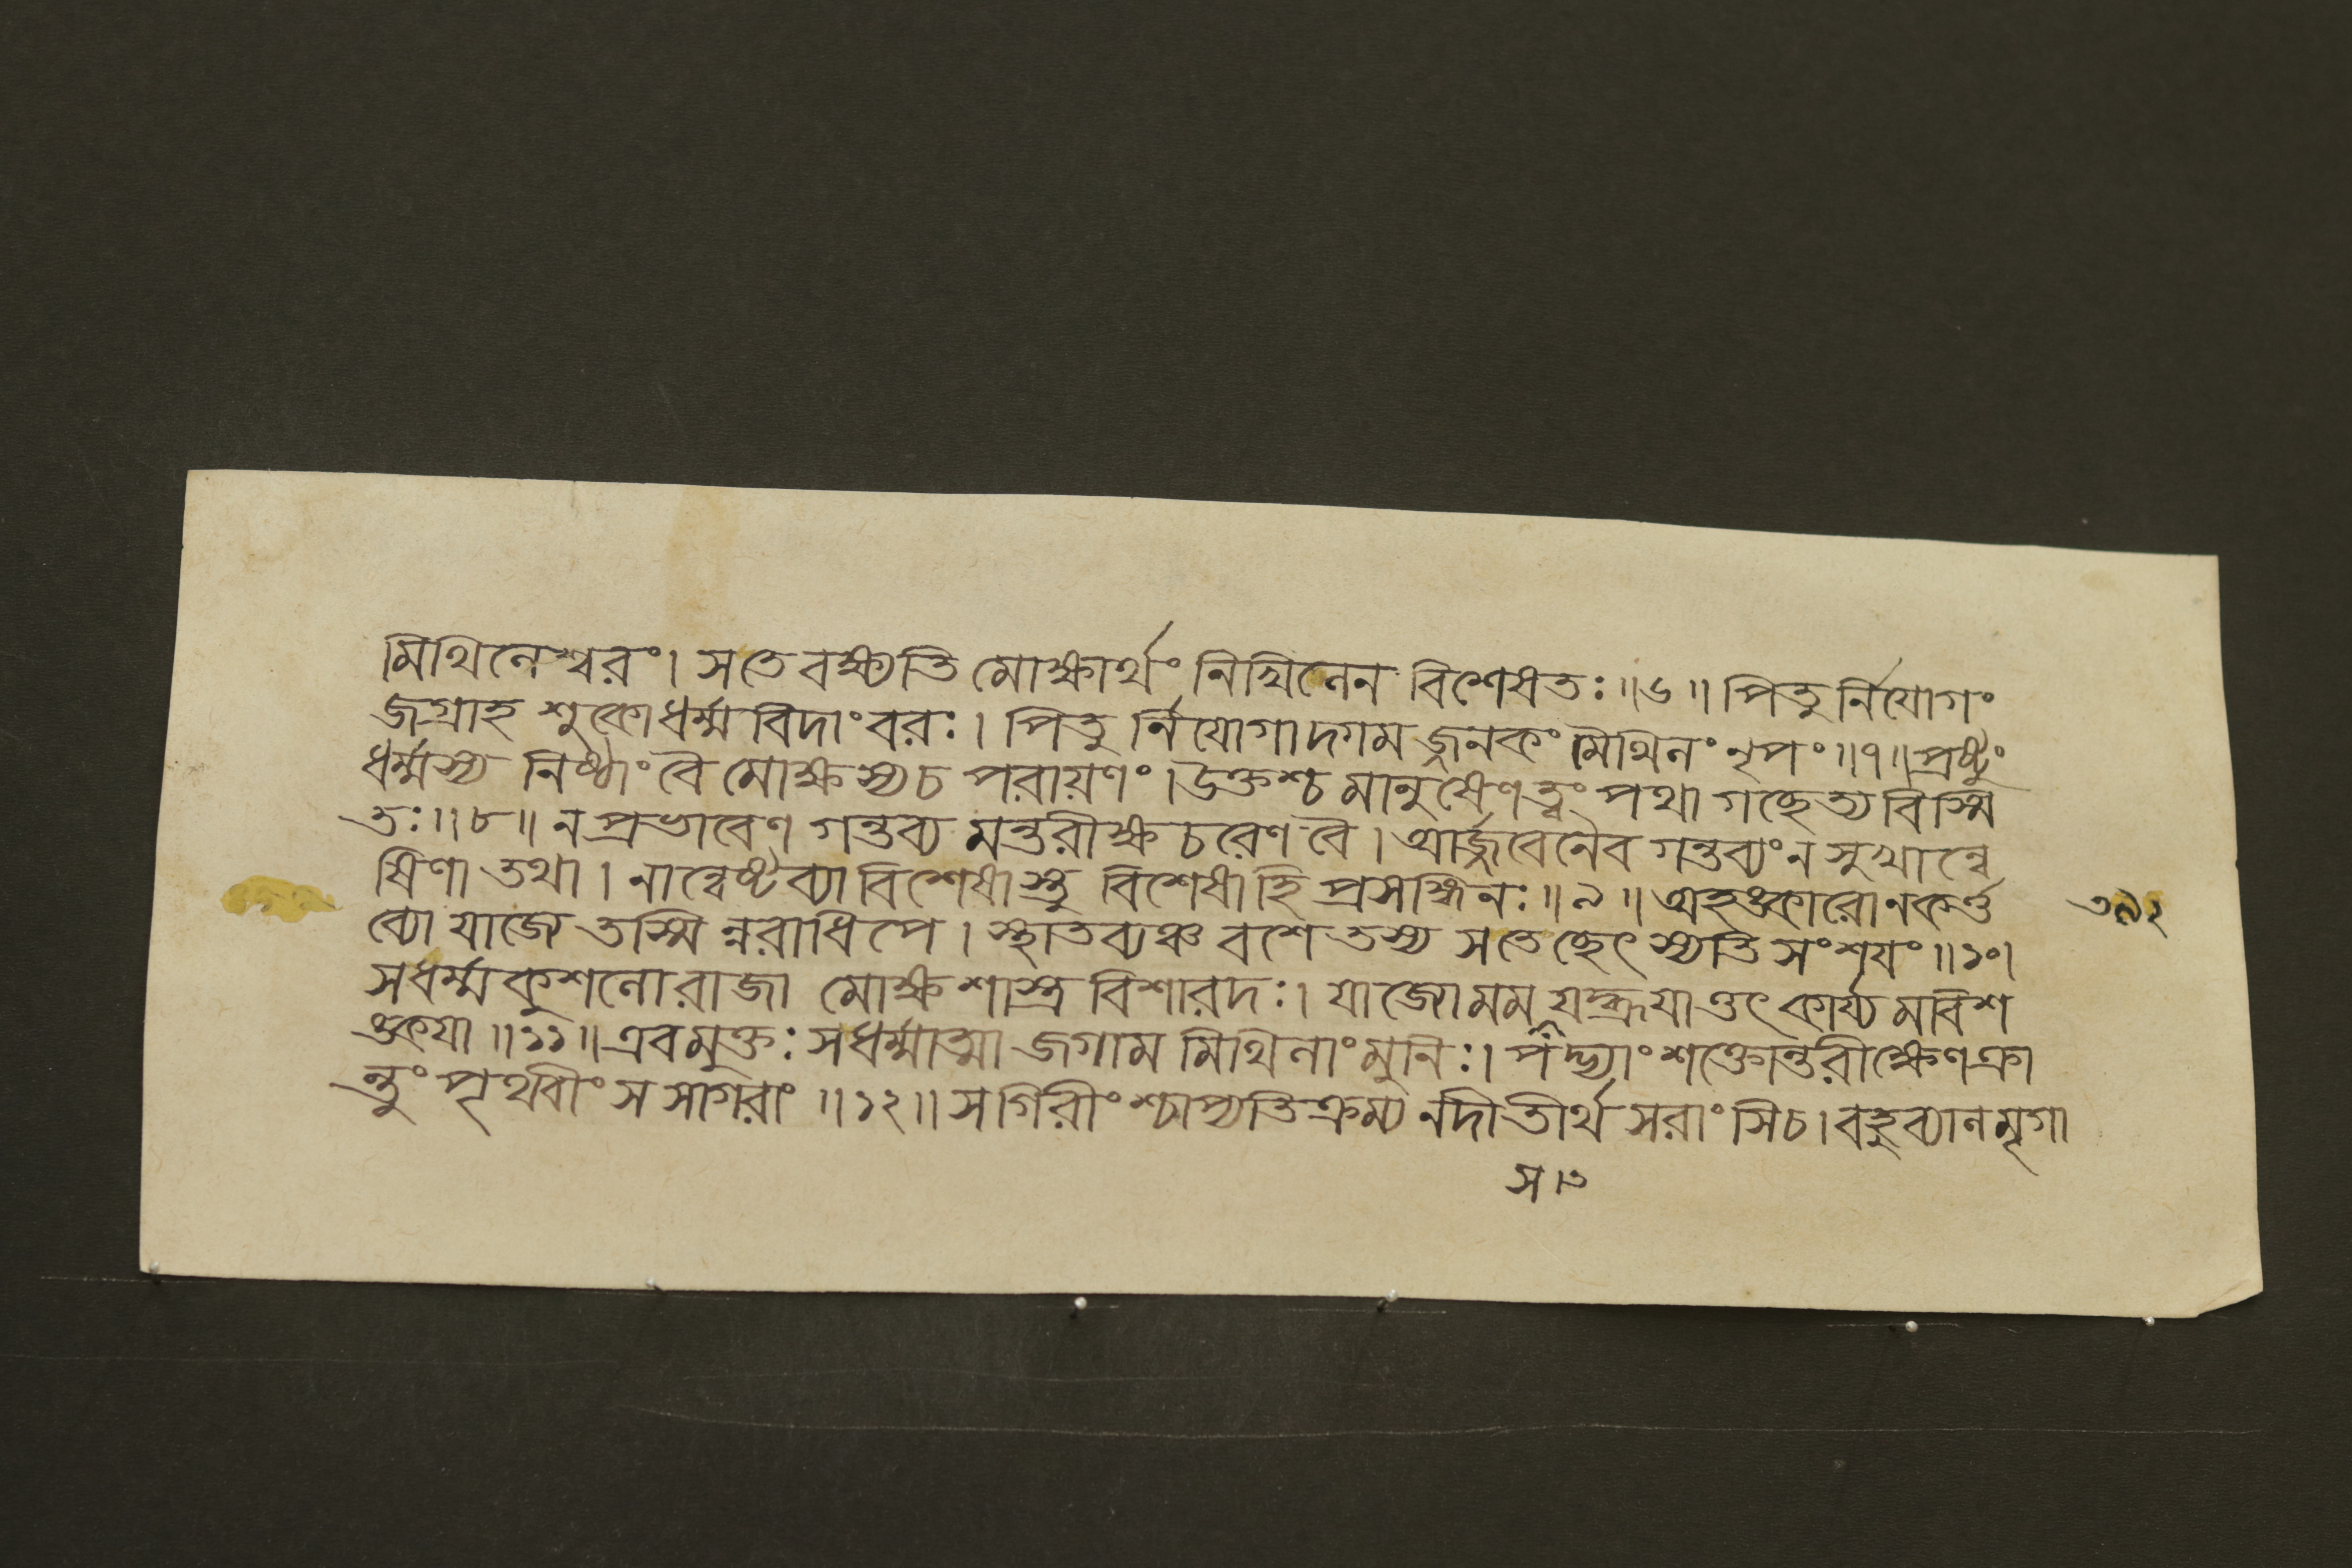 মিথিলেশ্বরং। সতে বক্ষ্যতি মোক্ষার্থং নিখিলেন বিশেষতঃ॥৬॥ পিতুর্নিযোগং
জগ্রাহ শুকোধর্ম্মবিদাংবরঃ। পিতুর্নিযোগাদ্গমজ্জনকং মিথিলং নৃপং॥৭॥প্রষ্টুং
ধর্ম্মস্য নিষ্ঠাংবৈ মোক্ষস্যচ পরায়ণং। উক্তশ্চ মানুষেণত্বং পথা গচ্ছেত্যবিস্মি
তঃ॥৮॥ নপ্রভাবেণ গন্তব্য মন্তরীক্ষচরেণ বৈ। আর্জ্জবেনৈব গন্তব্যংন সুখান্বে
ষিণা তথা। নান্বেষ্টব্যা বিশেষাস্তু বিশেষাহি প্রসঙ্গিনঃ॥৯॥ অহঙ্কারোনকর্ত্ত
ব্যো যাজ্যে তস্মিন্নরাধিপে। স্থাতব্যঞ্চ বশে তস্য সতেচ্ছেৎস্যতি সংশযং॥১০।
সধর্ম্মকুশলোরাজা মোক্ষশাস্ত্র বিশারদঃ। যাজ্যোমম যদ্ব্রূযাত্তৎকার্য্যমবিশ
ঙ্কযা॥১১॥এবমুক্তঃ সধর্ম্মাত্মা জগাম মিথিলাংমুনিঃ। পদ্ভ্যাংশক্তোন্তরীক্ষেণক্রা
ন্তুং পৃথবীং স সাগরাং॥১২॥ সগিরীংশ্চাপ্যতিক্রম্য নদীতীর্থ সরাংসিচ। বহুব্যালমৃগা
স।৩
৩৯২